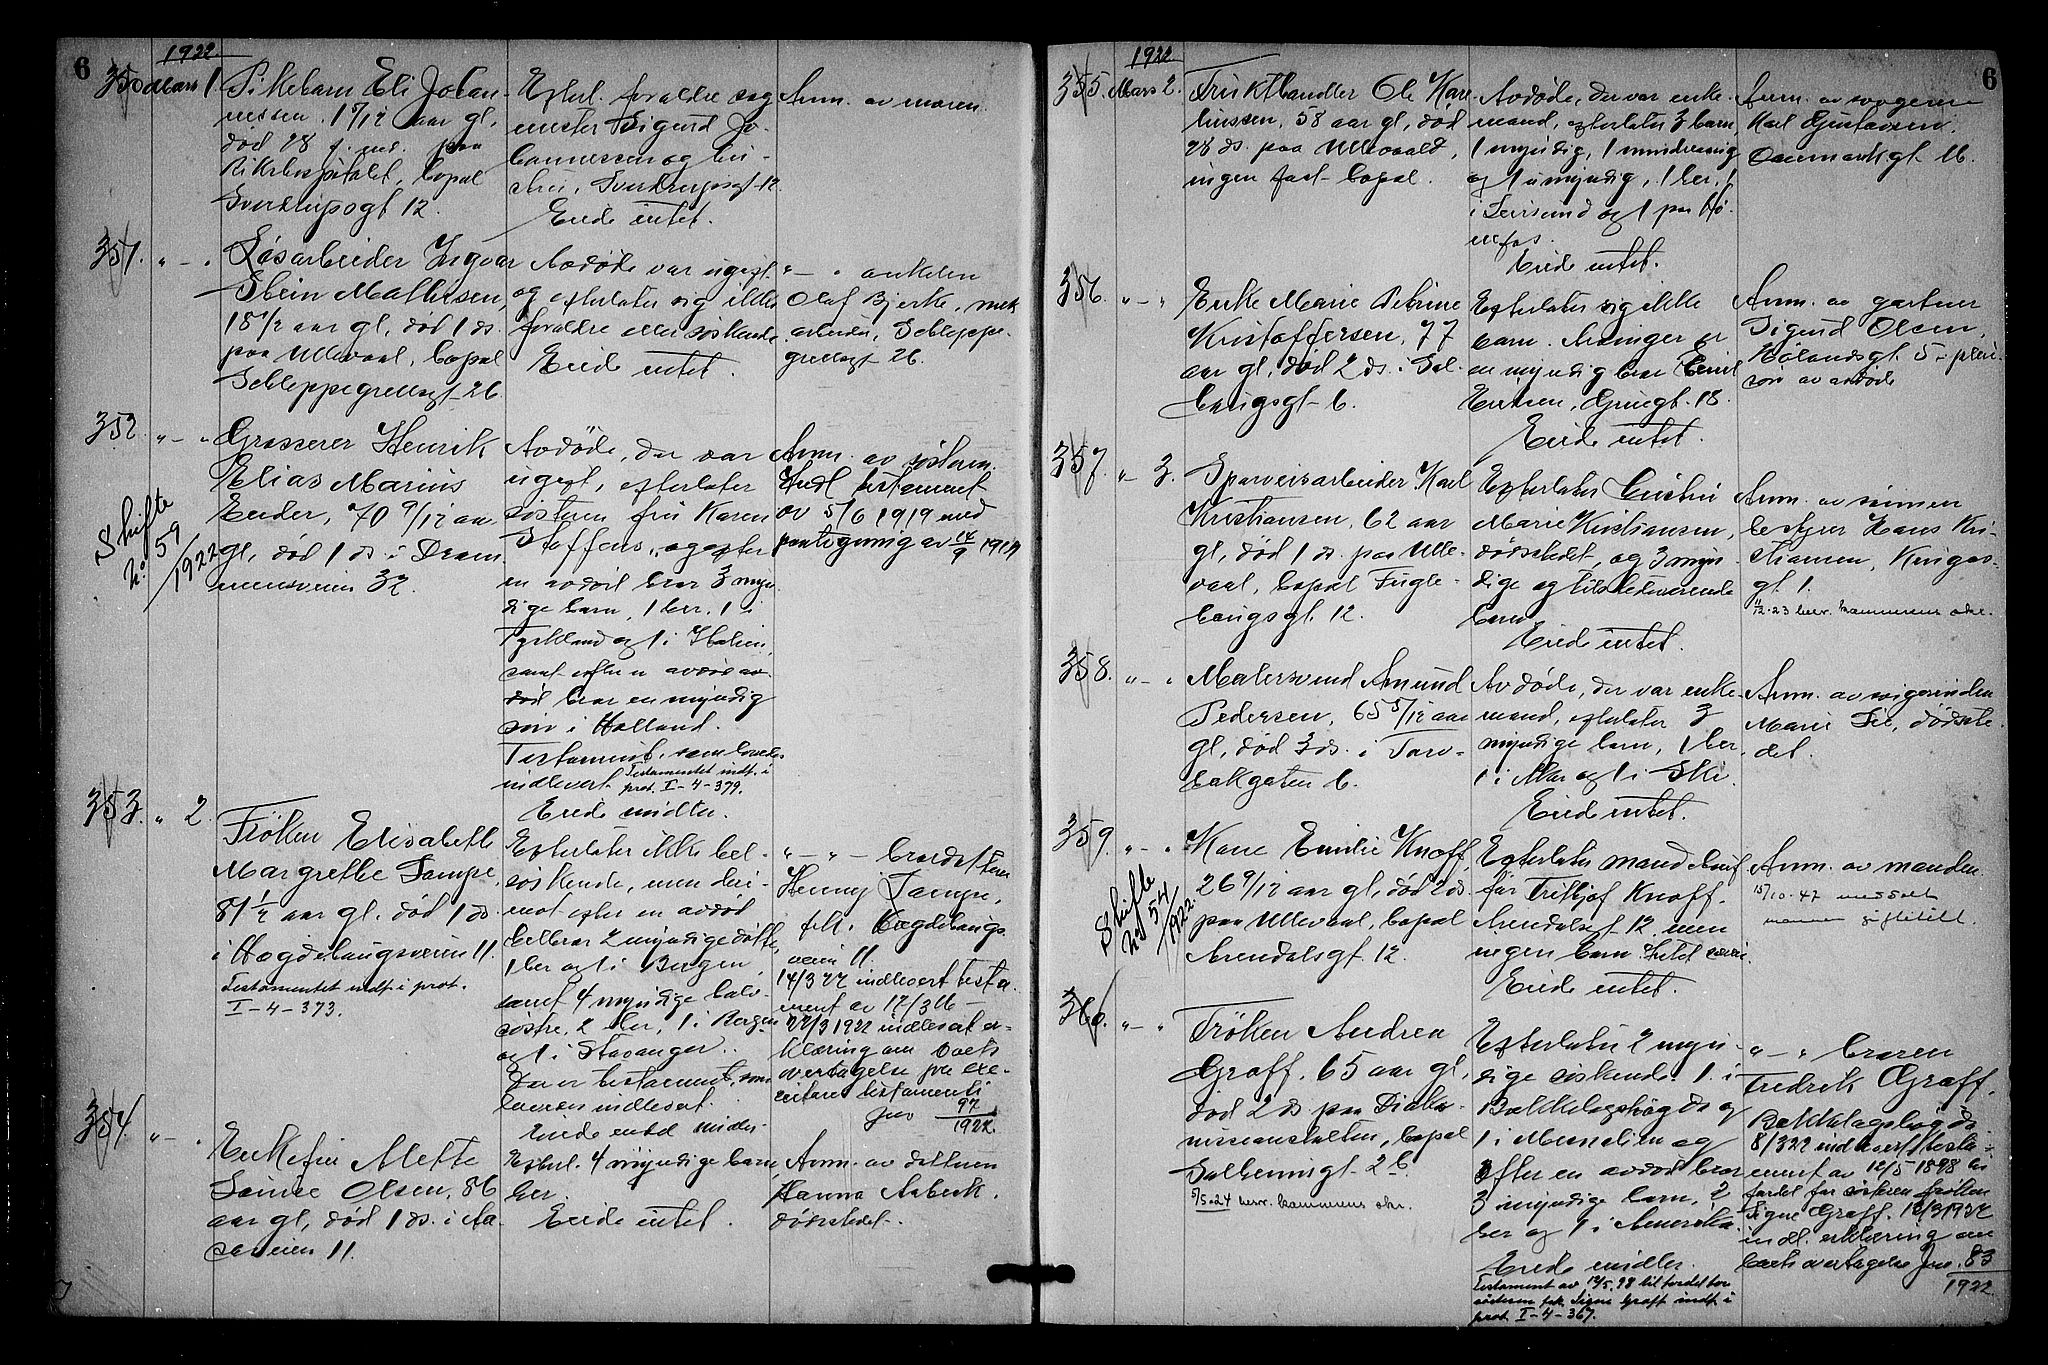 6
1922
350 Mars 1.
Pikebarn Eli Johan-
nessen. 1 7/12 aar gl,
død 28 f. md. paa
Rikshospitalet, bopæl
Sverdrupsgt 12.
Efterl. forældre sag
mester Sigurd Jo-
hannessen og hu-
stru, Sverdrupsgt. 12.
Eiede intet.
Anm. av moren.
351. " - "
Løsarbeider Ingvar
Stein Mathisen,
18 1/2 aar gl, død 1 ds.
paa Ullevaal, bopæl
Schleppegrellsgt 26.
Avdøde var ugift
og efterlater sig ikke
forældre eller søskende.
Eiede intet.
" - " onkelen
Olaf Bjerke, mek.
arbeider, Schleppe-
grellsgt 26.
352. " - "
Grosserer Henrik
Elias Marius
70 9/12 aar
gl, død 1 ds. i Dram-
mensveien 32.
Skifte
No. 59
/1922
Avdøde, der var
ugift, efterlater
søsteren fru Karen
Steffens, og efter
en avdød bror 3 myn-
dige barn, 1 her, 1 i
Tyskland og 1 i Italien,
samt efter en
død bror en myndig
søn i Holland.
Testament, som
indlevert. Testamentet indt. i
prot. I-4-379.
Eiede midler.
Anm. av søsteren.
Indl. testament
av 5/6 1919 med
paategning av 14/9 1919
353. " 2.
Frøken Elisabeth
Margrethe Jampe,
81 1/2 aar gl. død 1 ds.
i Høgdehaugsveien 11.
Testamentet indt. i prot.
I-4-373.
Efterlater ikke hel-
søskende, men der-
imot efter en avdød
helbror 2 myndige døttre,
1 her og 1 i Bergen,
samt 4 myndige halv-
søstre, 2 her, 1 i Bergen
og 1 i Stavanger.
Der er testament, som
indlevert.
Eiede midler.
" - " - brordatteren
Henny Jampe,
frk. Høgdehaugs-
veien 11.
14/3 22 indlevert testa-
ment av 17/3 16 -
22/3 1922 indlevert er-
klæring om boets
overtagelse fra exe-
cutor testamenti
Jnr 97
1922.
354. " - "
Enkefru Mette
Louise Olsen, 86
aar gl, død 1 ds. i Aa-
sveien 11.
Efterl. 4 myndige barn,
her.
Eiede intet.
Anm. av datteren
Hanna Aabeck,
dødsstedet.
6
1922
355. Mars 2.
Frukthandler Ole Kare-
linssen, 58 aar gl, død
28 ds. paa Ullevaal,
ingen fast bopæl.
Avdøde, der var enke-
mand, efterlater 3 barn,
1 myndig, 1 mindreaarig
og 1 umyndig, 1 her, 1
i Leirsund og 1 paa Hø-
nefos.
Eiede intet.
Anm. av svogeren
Karl Gustavsen,
Danmarksgt. 16.
356. " - "
Enke Marie Petrine
Kristoffersen, 77
aar gl, død 2 ds. i Sol-
haugsgt. 6.
Efterlater sig ikke
barn. Arvinger er
en myndig bror Emil
Eriksen, Gruegt. 18.
Eiede intet.
Anm. av gartner
Sigurd Olsen,
Hølandsgt. 5 - pleie-
søn av avdøde
357. " 3.
Sporveisarbeider Karl
Kristiansen, 62 aar
gl, død 1 ds. paa Ulle-
vaal, bopæl Fugle-
haugsgt. 12.
Efterlater hustru
Marie Kristiansen,
dødsstedet, og 3 myn-
dige og tilstedeværende
barn.
Eiede intet.
Anm. av sønnen
bestyrer Hans Kri-
stiansen, Kingos-
gt 1.
358. " - "
Malersvend Amund
Pedersen, 65 5/12 aar
gl, død 3 ds. i Torv-
bakgaten 6.
Avdøde, der var enke-
mand, efterlater 3
myndige barn, 1 her
1 i Mos og 1 i Ski.
Eiede intet.
Anm. av svigerinden
Marie Lie, dødsste-
det.
359. " - "
Kone Emilie Knoff,
26 9/12 aar gl, død 2 ds.
paa Ullevaal, bopæl
Arendalsgt. 12.
Skifte
No 54
/1922.
Efterlater mand
Fritjof Knoff,
Arendalsgt. 12, men
ingen barn.
Eiede intet.
Anm. av manden.
15/10-47 meddelt
mannen skiftetill.
360. " - "
Frøken Andrea
Graff, 65 aar gl,
død 2 ds paa Diako-
nisseanstalten, bopæl
Solheimsgt. 2 b.
5/5-24 bevr. kammerens skr.
Efterlater 2 myn-
dige søskende. 1 i
Bækkelagshøgda og
1 i Mesnalien og
efter en avdød bror
3 myndige barn, 2
her og 1 i Amerika.
Eiede midler.
Testament av 12/5.98 til fordel for
søsteren frk. Signe Graff indt. i
prot. I-4-367.
" - " broren
Fredrik Graff,
Bækkelagshøgda.
8/3 22 indlevert testa-
ment av 12/5 1898 til
fordel for søsteren frøken
Signe Graff. 13/3 1922
indl. erklæring om
boets overtagelse Jnr. 83
1922.